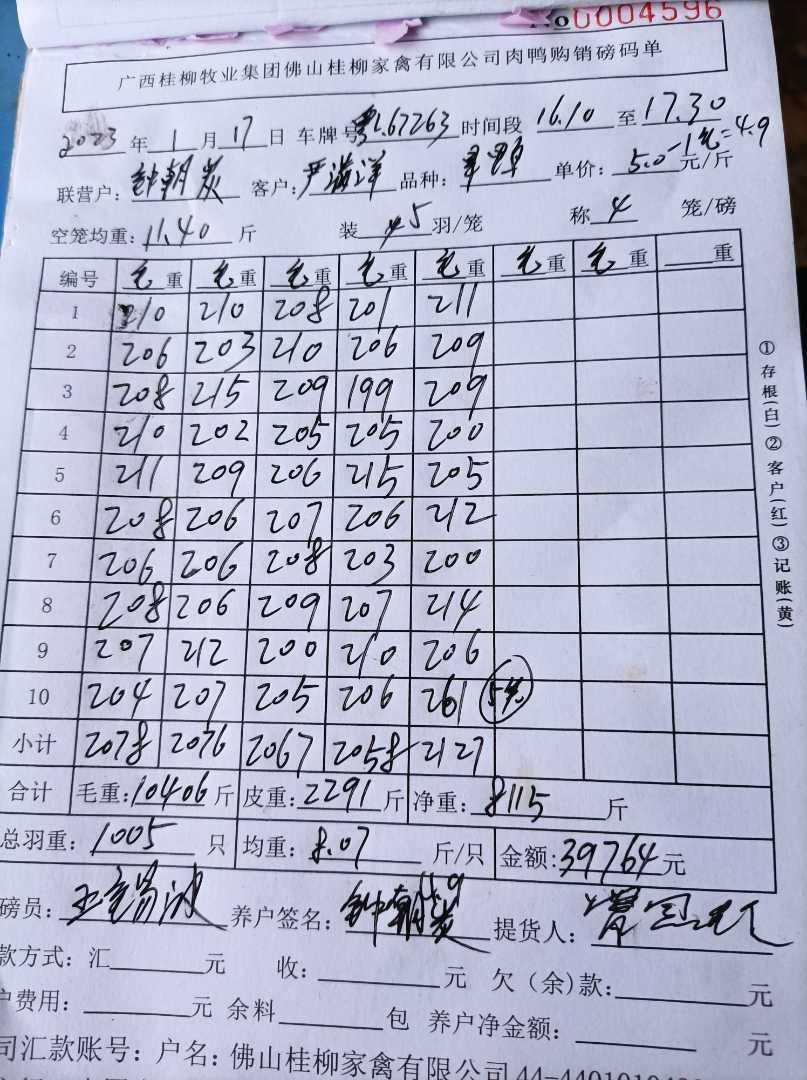 No 0004596
广西桂柳牧业集团佛山桂柳家禽有限公司肉鸭购销磅码单
2023 年 1 月 17 日 车牌号 粤L67263 时间段 16.10 至 17.30
联营户: 钟朝炭 客户: 严海洋 品种: 单价: 5.0-1毛=4.9 元/斤
空笼均重: 11.40 斤 装 5 羽/笼 称 4 笼/磅
编号 毛重 毛重 毛重 毛重 毛重 毛重 毛重 重
1 210 210 208 201 211
2 206 203 210 206 209
3 208 215 209 199 209
4 210 202 205 205 200
5 211 209 206 215 205
6 208 206 207 206 212
7 206 206 208 203 200
8 208 206 209 207 214
9 207 212 200 210 206
10 204 207 205 206 261 5笼
小计 2078 2076 2067 2058 2127
合计 毛重: 10406 斤 皮重: 2291 斤 净重: 8115 斤
总羽重: 1005 只 均重: 8.07 斤/只 金额: 39764 元
磅员: 养户签名: 钟朝炭 提货人:
款方式: 汇 元 收: 元 欠(余)款: 元
户费用: 元 余料 包 养户净金额: 元
司汇款账号: 户名: 佛山桂柳家禽有限公司 44-4401010
①存根(白)②客户(红)③记账(黄)